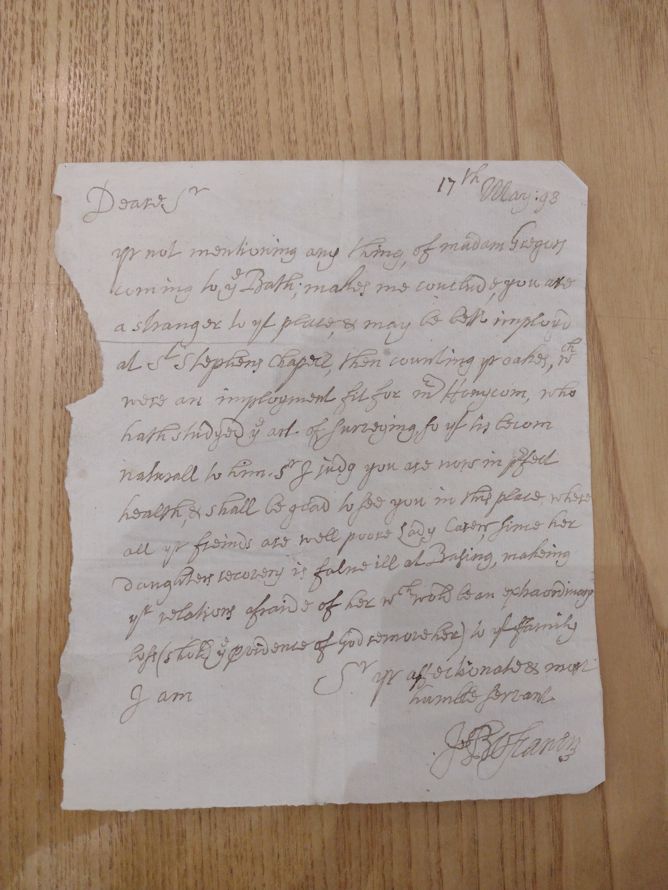 17th May: 93
Deare Sr
yr not mentioning any thing, of madam Gregors
coming to ye Bath; makes me conclude, you are
a stranger to yt place, & may be better imployd
at St Stephens Chapell, then counting yr oakes, wch
were an imployment fit for mr Honycom, who
hath studyed ye art of surveying, so yt tis becom
naturall to him. Sr I judg you are now in pfect
health, & shall be glad to see you in this place, where
all yr freinds are well poore Lady Carew, since her
daughters recovery is falne ill at Basing, makeing
yr relations afraide of her wch wold be an extraordinary
loss (shold ye providence of God remove her) to yt Family
I am Sr yr affectionate & most
humble servant